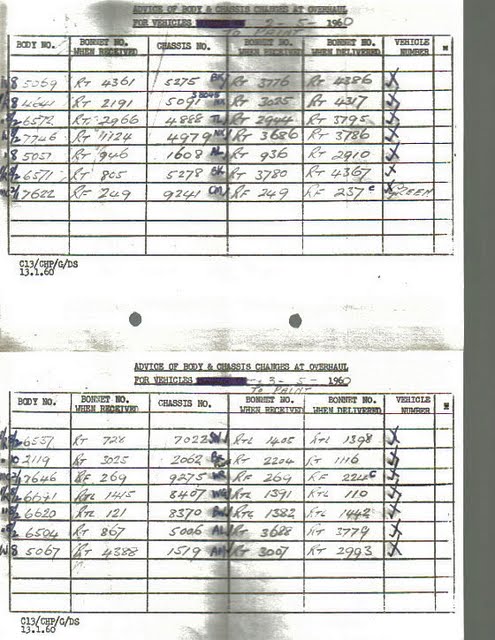 ADVICE OF BODY & CHASSIS CHANGES AT OVERHAUL
FOR VEHICLES 2-5-1960
TO PAINT
BODY NO. BONNET NO. WHEN RECEIVED CHASSIS NO. BONNET NO. WHEN RECEIVED BONNET NO. WHEN DELIVERED VEHICLE NUMBER
8 5069 RT 4361 5275 BK RT 3776 RT 4386
8 4641 RT 2191 5091 RT 3025 RT 4317
6572 RT 2966 4888 TL RT 2944 RT 3795
7746 RT 1724 4979 RT 3686 RT 3786
8 5051 RT 946 1608 AL RT 936 RT 2910
6571 RT 805 5278 BK RT 3780 RT 4367
7622 RF 249 9241 RF 249 RF 237 C GREEN
C13/CHP/G/DS
13.1.60
ADVICE OF BODY & CHASSIS CHANGES AT OVERHAUL
FOR VEHICLES 3-5-1960
TO PAINT
BODY NO. BONNET NO. WHEN RECEIVED CHASSIS NO. BONNET NO. WHEN RECEIVED BONNET NO. WHEN DELIVERED VEHICLE NUMBER
6551 RT 7022 RTL 1405 RTL 1398
2119 RT 3025 2062 RT 2204 RT 1116
7646 RF 269 9275 RF 269 RF 224 C
RTL 1415 8407 RTL 1391 RTL 110
6620 RTL 121 8370 RTL 1382 RTL 1442
6504 RT 867 5006 AL RT 3688 RT 3779
8 5067 RT 4388 1579 RT 3007 RT 2993
C13/CHP/G/DS
13.1.60